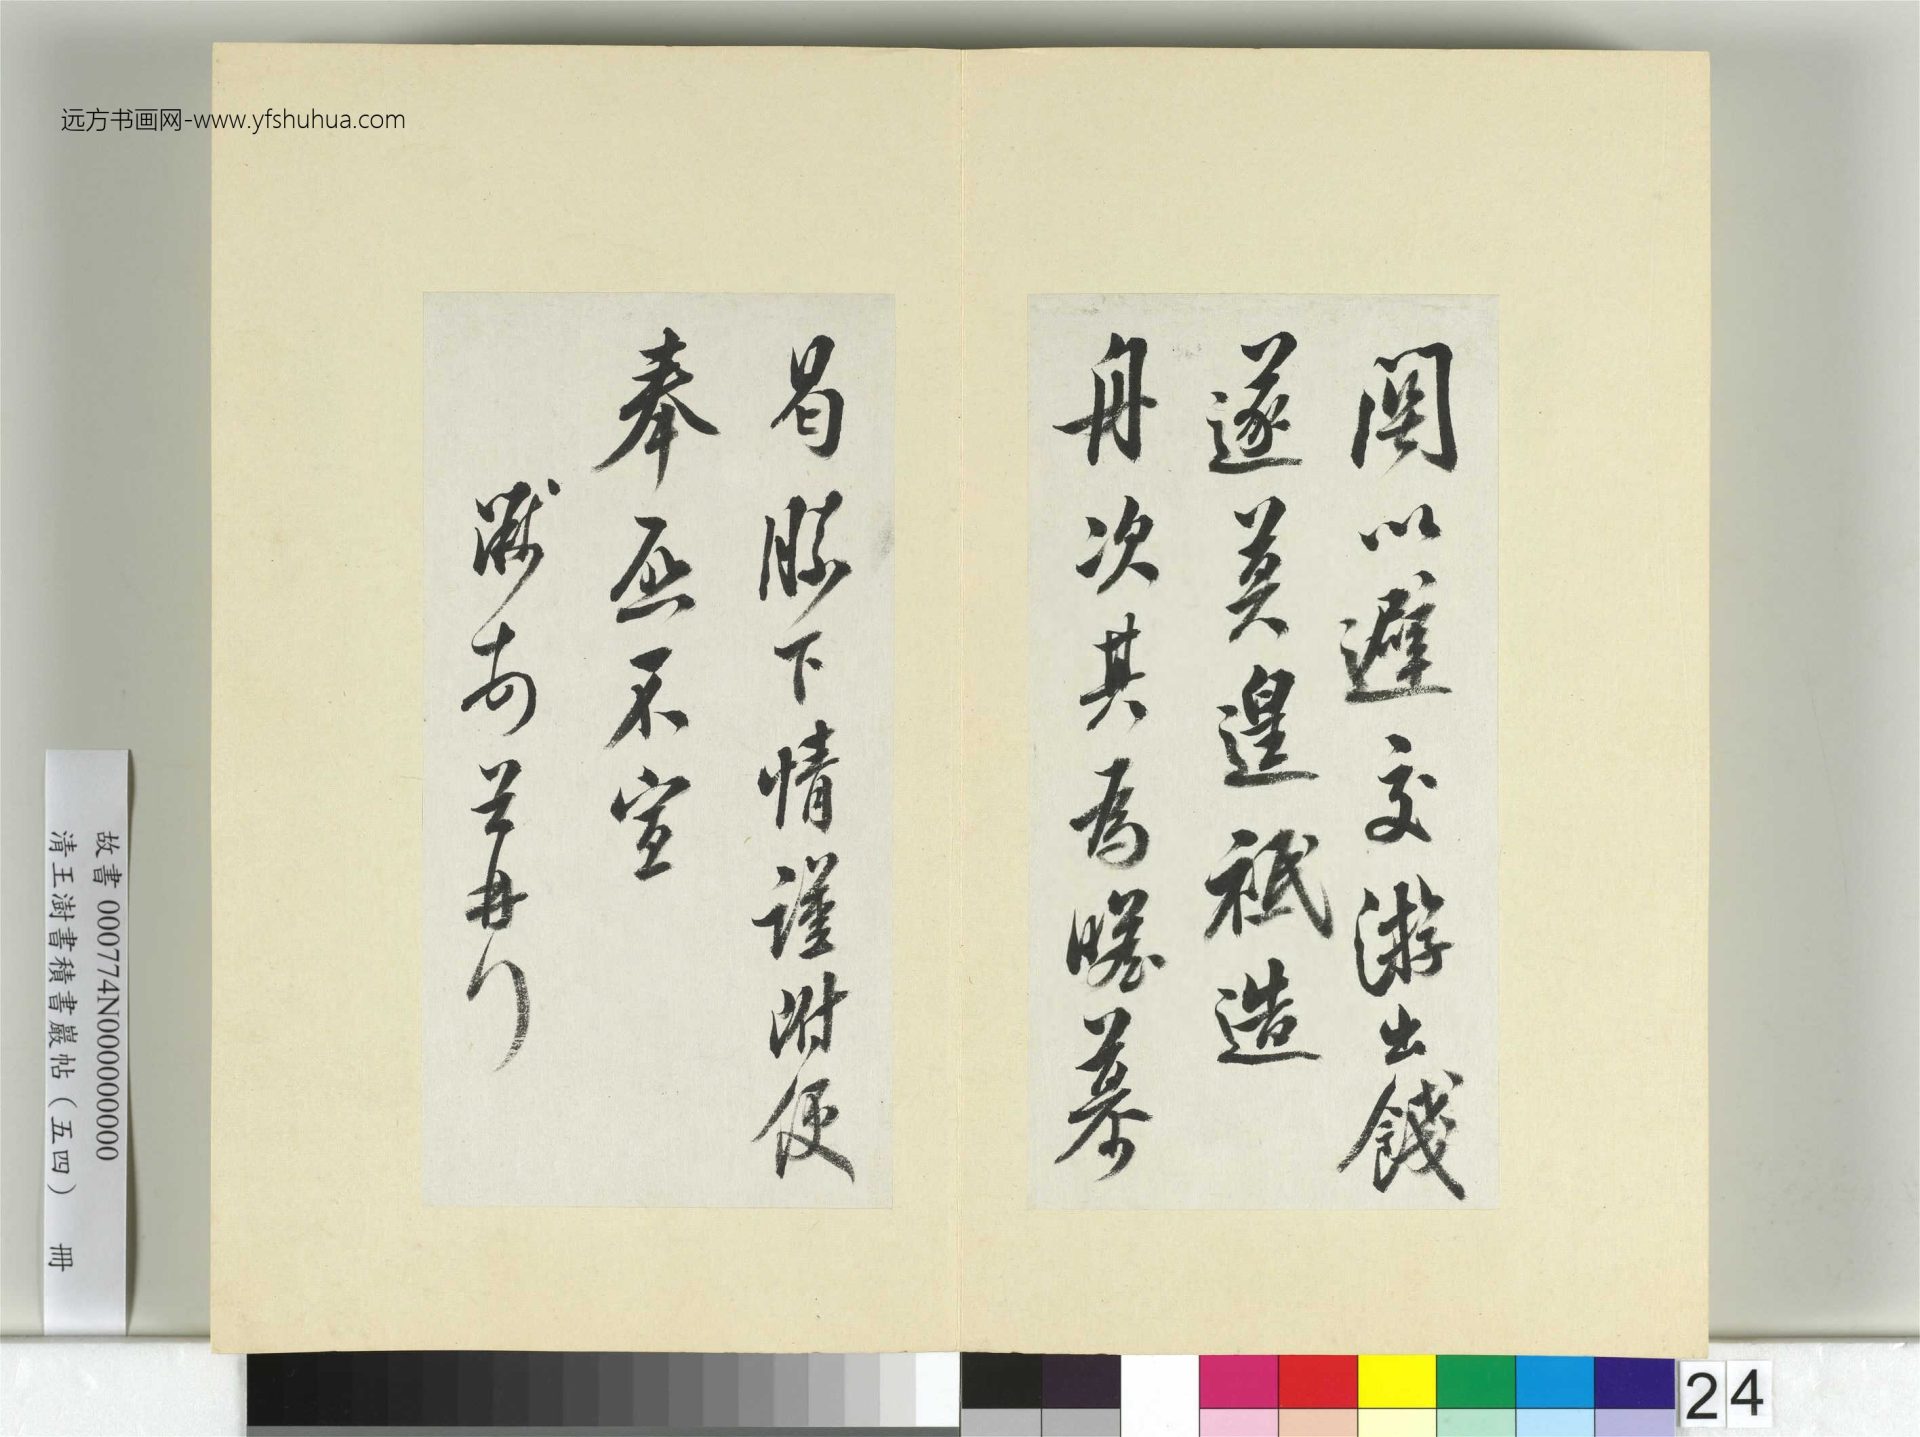 远方书画网-www.yfshuhua.com
関以避交游出餞
遂莫遑祗造
舟次其為瞻慕
曷勝下情謹附便
奉啓不宣
頓首
故書 000774N000000000
清王澍書積書巖帖（五四） 冊
24